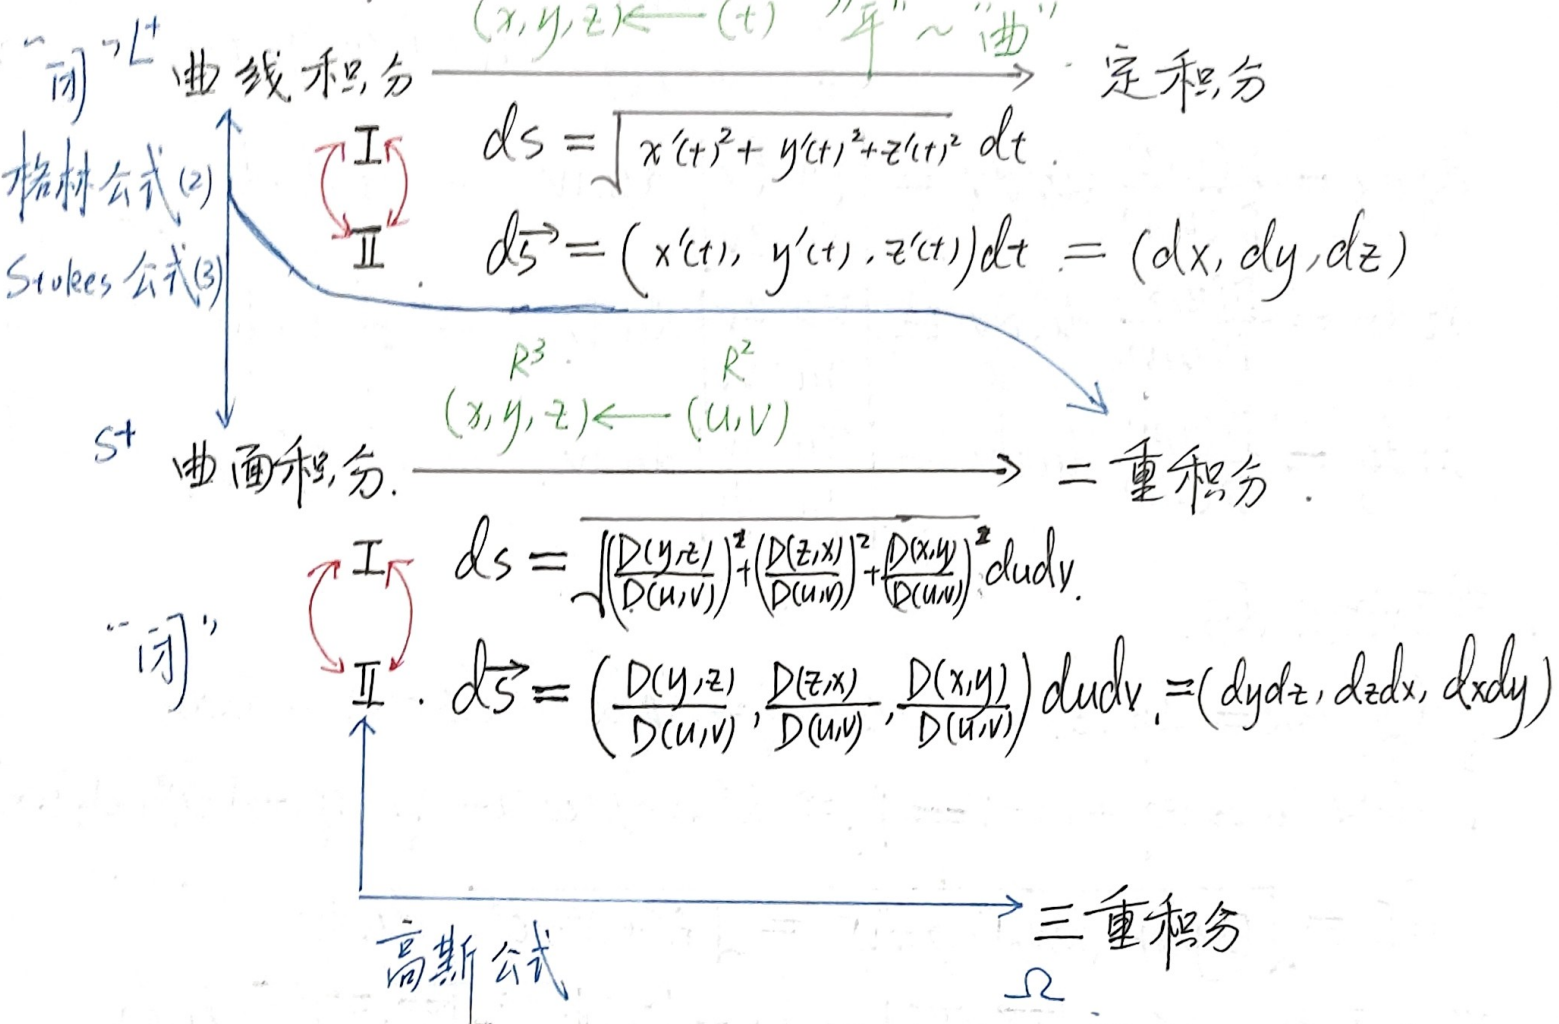 (x,y,z)←(t) "平"~"曲"
"闭" L⁺ 曲线积分 → 定积分
格林公式(2)
Stokes 公式(3)
I ds = √(x'(t)²+y'(t)²+z'(t)²) dt.
II. ds⃗ = (x'(t), y'(t), z'(t))dt = (dx, dy, dz)
R³ R²
(x,y,z)←(u,v)
S⁺ 曲面积分. → 二重积分.
I ds = √((D(y,z)/D(u,v))²+(D(z,x)/D(u,v))²+(D(x,y)/D(u,v))²) dudv.
"闭"
II. ds⃗ = (D(y,z)/D(u,v), D(z,x)/D(u,v), D(x,y)/D(u,v)) dudv. = (dydz, dzdx, dxdy)
高斯公式 → 三重积分
Ω